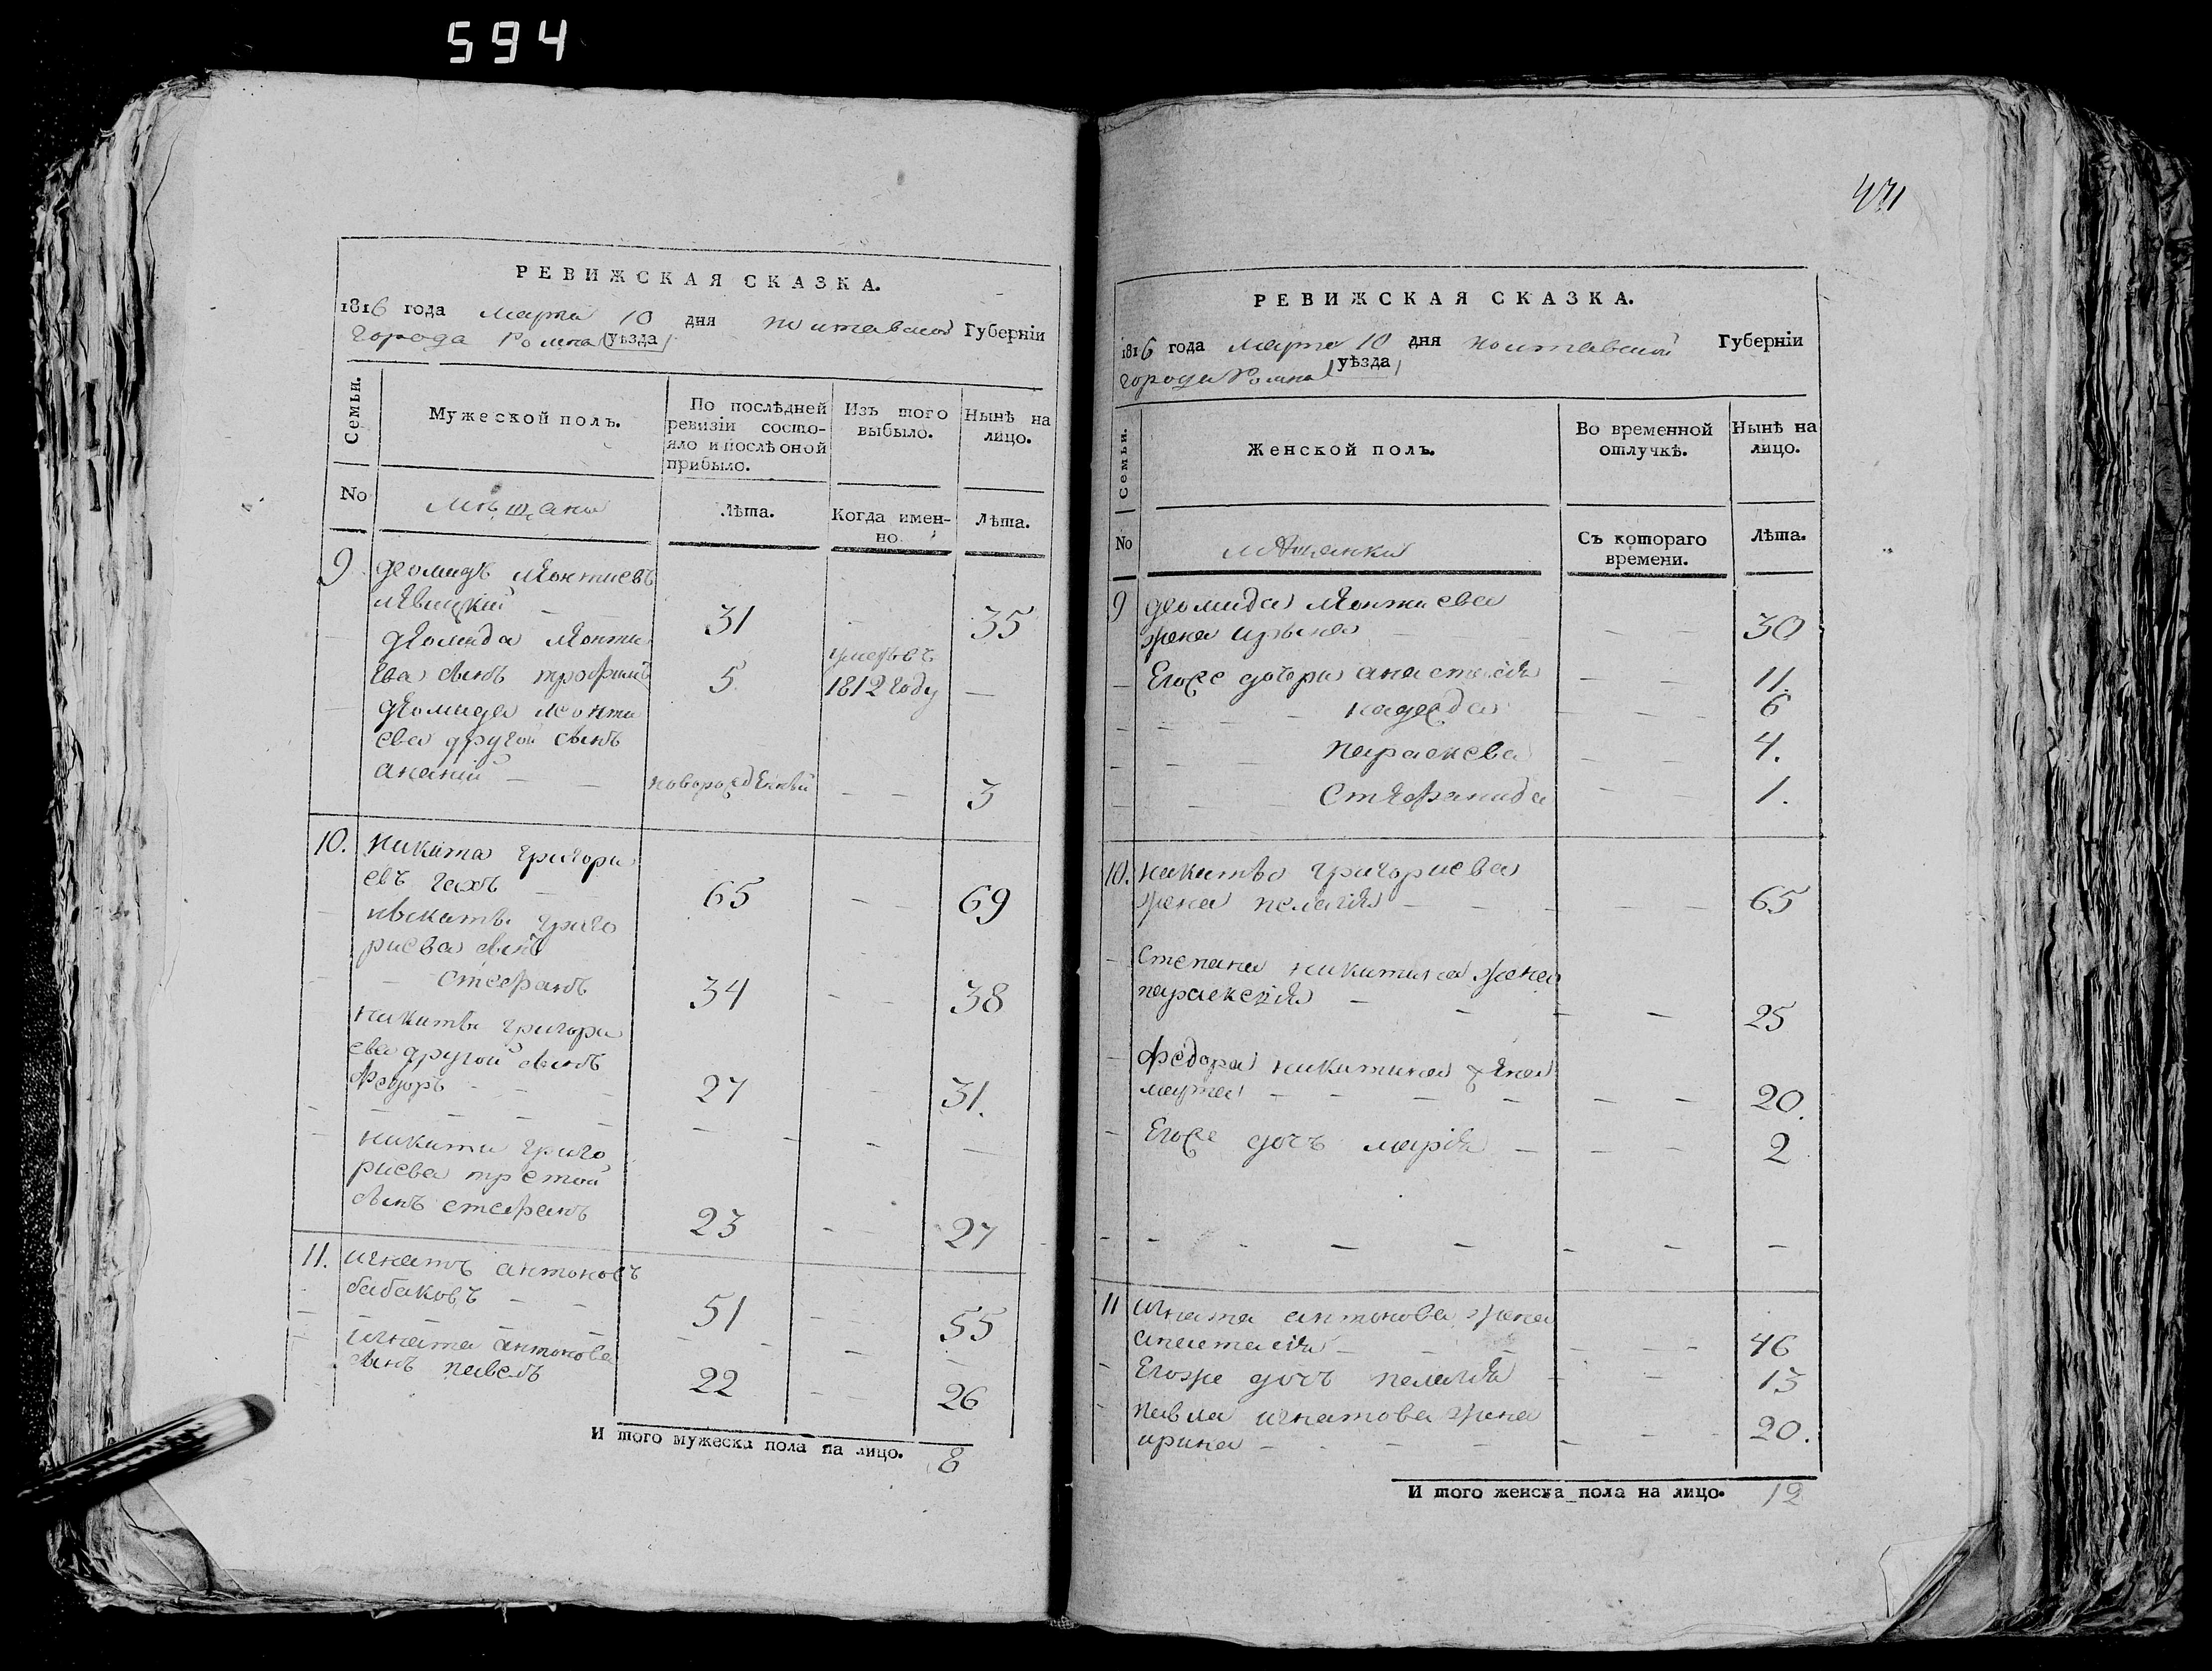 594
РЕВИЖСКАЯ СКАЗКА.
1816 года марта 10 дня полтавской Губерніи
города Ромна уѣзда
Семьи.
Мужеской полъ.
По послѣдней ревизіи состояло и послѣ оной прибыло.
Изъ того выбыло.
Нынѣ на лицо.
No
Мѣщане
Лѣта.
Когда именно.
Лѣта.
9 деомидъ леонтиевъ
левицкий 31 35
деомида леонти
ева синъ трофимъ 5 умеръ въ 1812 году
деомида леонти
ева другой синъ
ананий новорожденний 3
10. никита григори
евъ гахъ 65 69
никити григо
риева синъ
стефанъ 34 38
никити григори
ева другой синъ
федоръ 27 31.
никити григо
риева третой
синъ стефанъ 23 27
11. игнатъ антоновъ
бабаковъ 51 55
игната антонова
синъ павелъ 22 26
И того мужеска пола на лицо. 8
РЕВИЖСКАЯ СКАЗКА.
1816 года марта 10 дня полтавской Губерніи
города Ромна уѣзда
Семьи.
Женской полъ.
Во временной отлучкѣ.
Нынѣ на лицо.
No
мещанки
Съ котораго времени.
Лѣта.
9 деомида леонтиева
жена ирина 30
Егоже дочери анастасия 11.
надежда 6
параскева 4.
стефанида 1.
10. никити григориева
жена пелагия 65
степана никитина жена
параскевия 25
федора никитина жена
марта 20.
Егоже дочъ мария 2
11 игната антонова жена
анастасия 46
Егоже дочъ пелагия 13
павла игнатова жена
ирина 20.
И того женска пола на лицо. 12